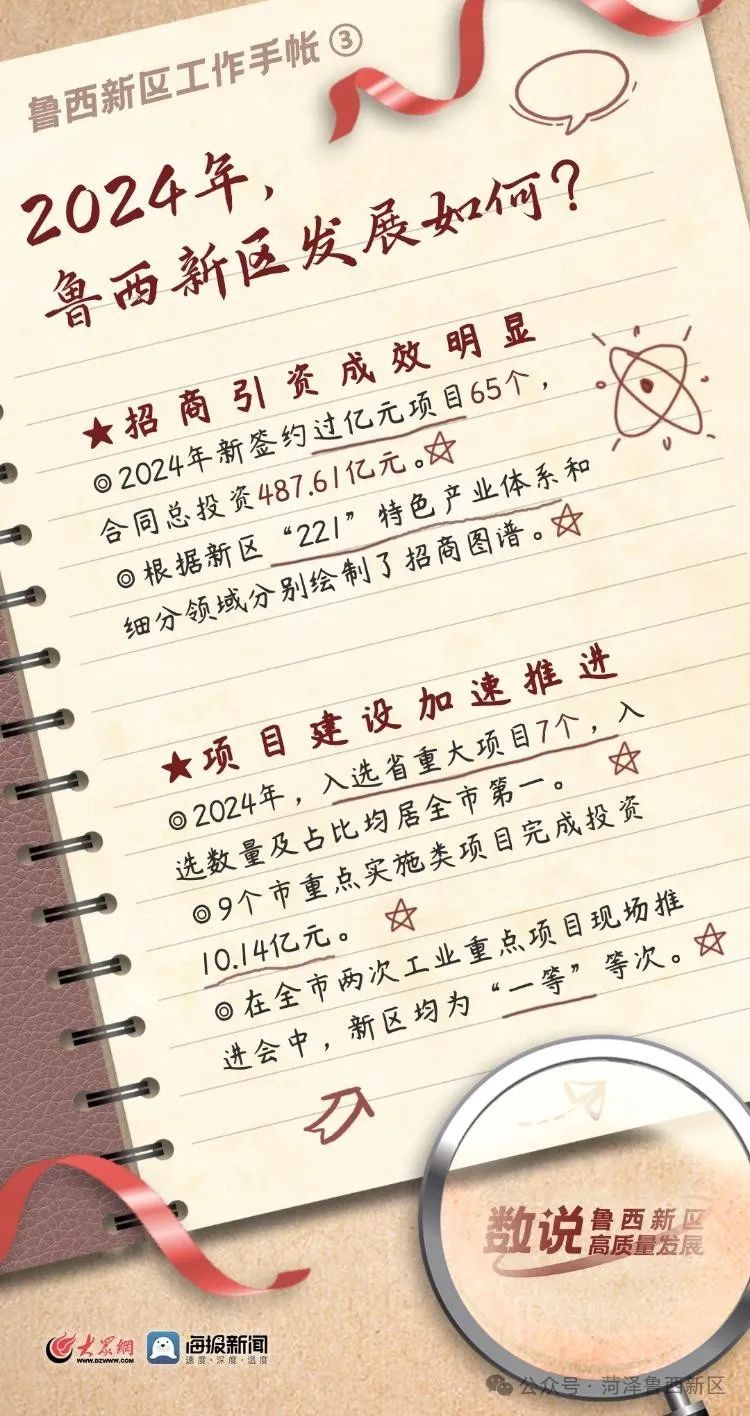 鲁西新区工作手帐③
2024年,
鲁西新区发展如何?
★招商引资成效明显
◎2024年新签约过亿元项目65个,
合同总投资487.61亿元。
◎根据新区“221”特色产业体系和
细分领域分别绘制了招商图谱。
★项目建设加速推进
◎2024年,入选省重大项目7个,入
选数量及占比均居全市第一。
◎9个市重点实施类项目完成投资
10.14亿元。
◎在全市两次工业重点项目现场推
进会中,新区均为“一等”等次。
数说鲁西新区
高质量发展
大众网
WWW.DZWWW.COM
海报新闻
速度·深度·温度
公众号·菏泽鲁西新区